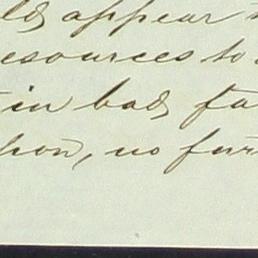 ld appear
esources to
in bad fa
hon, no fur